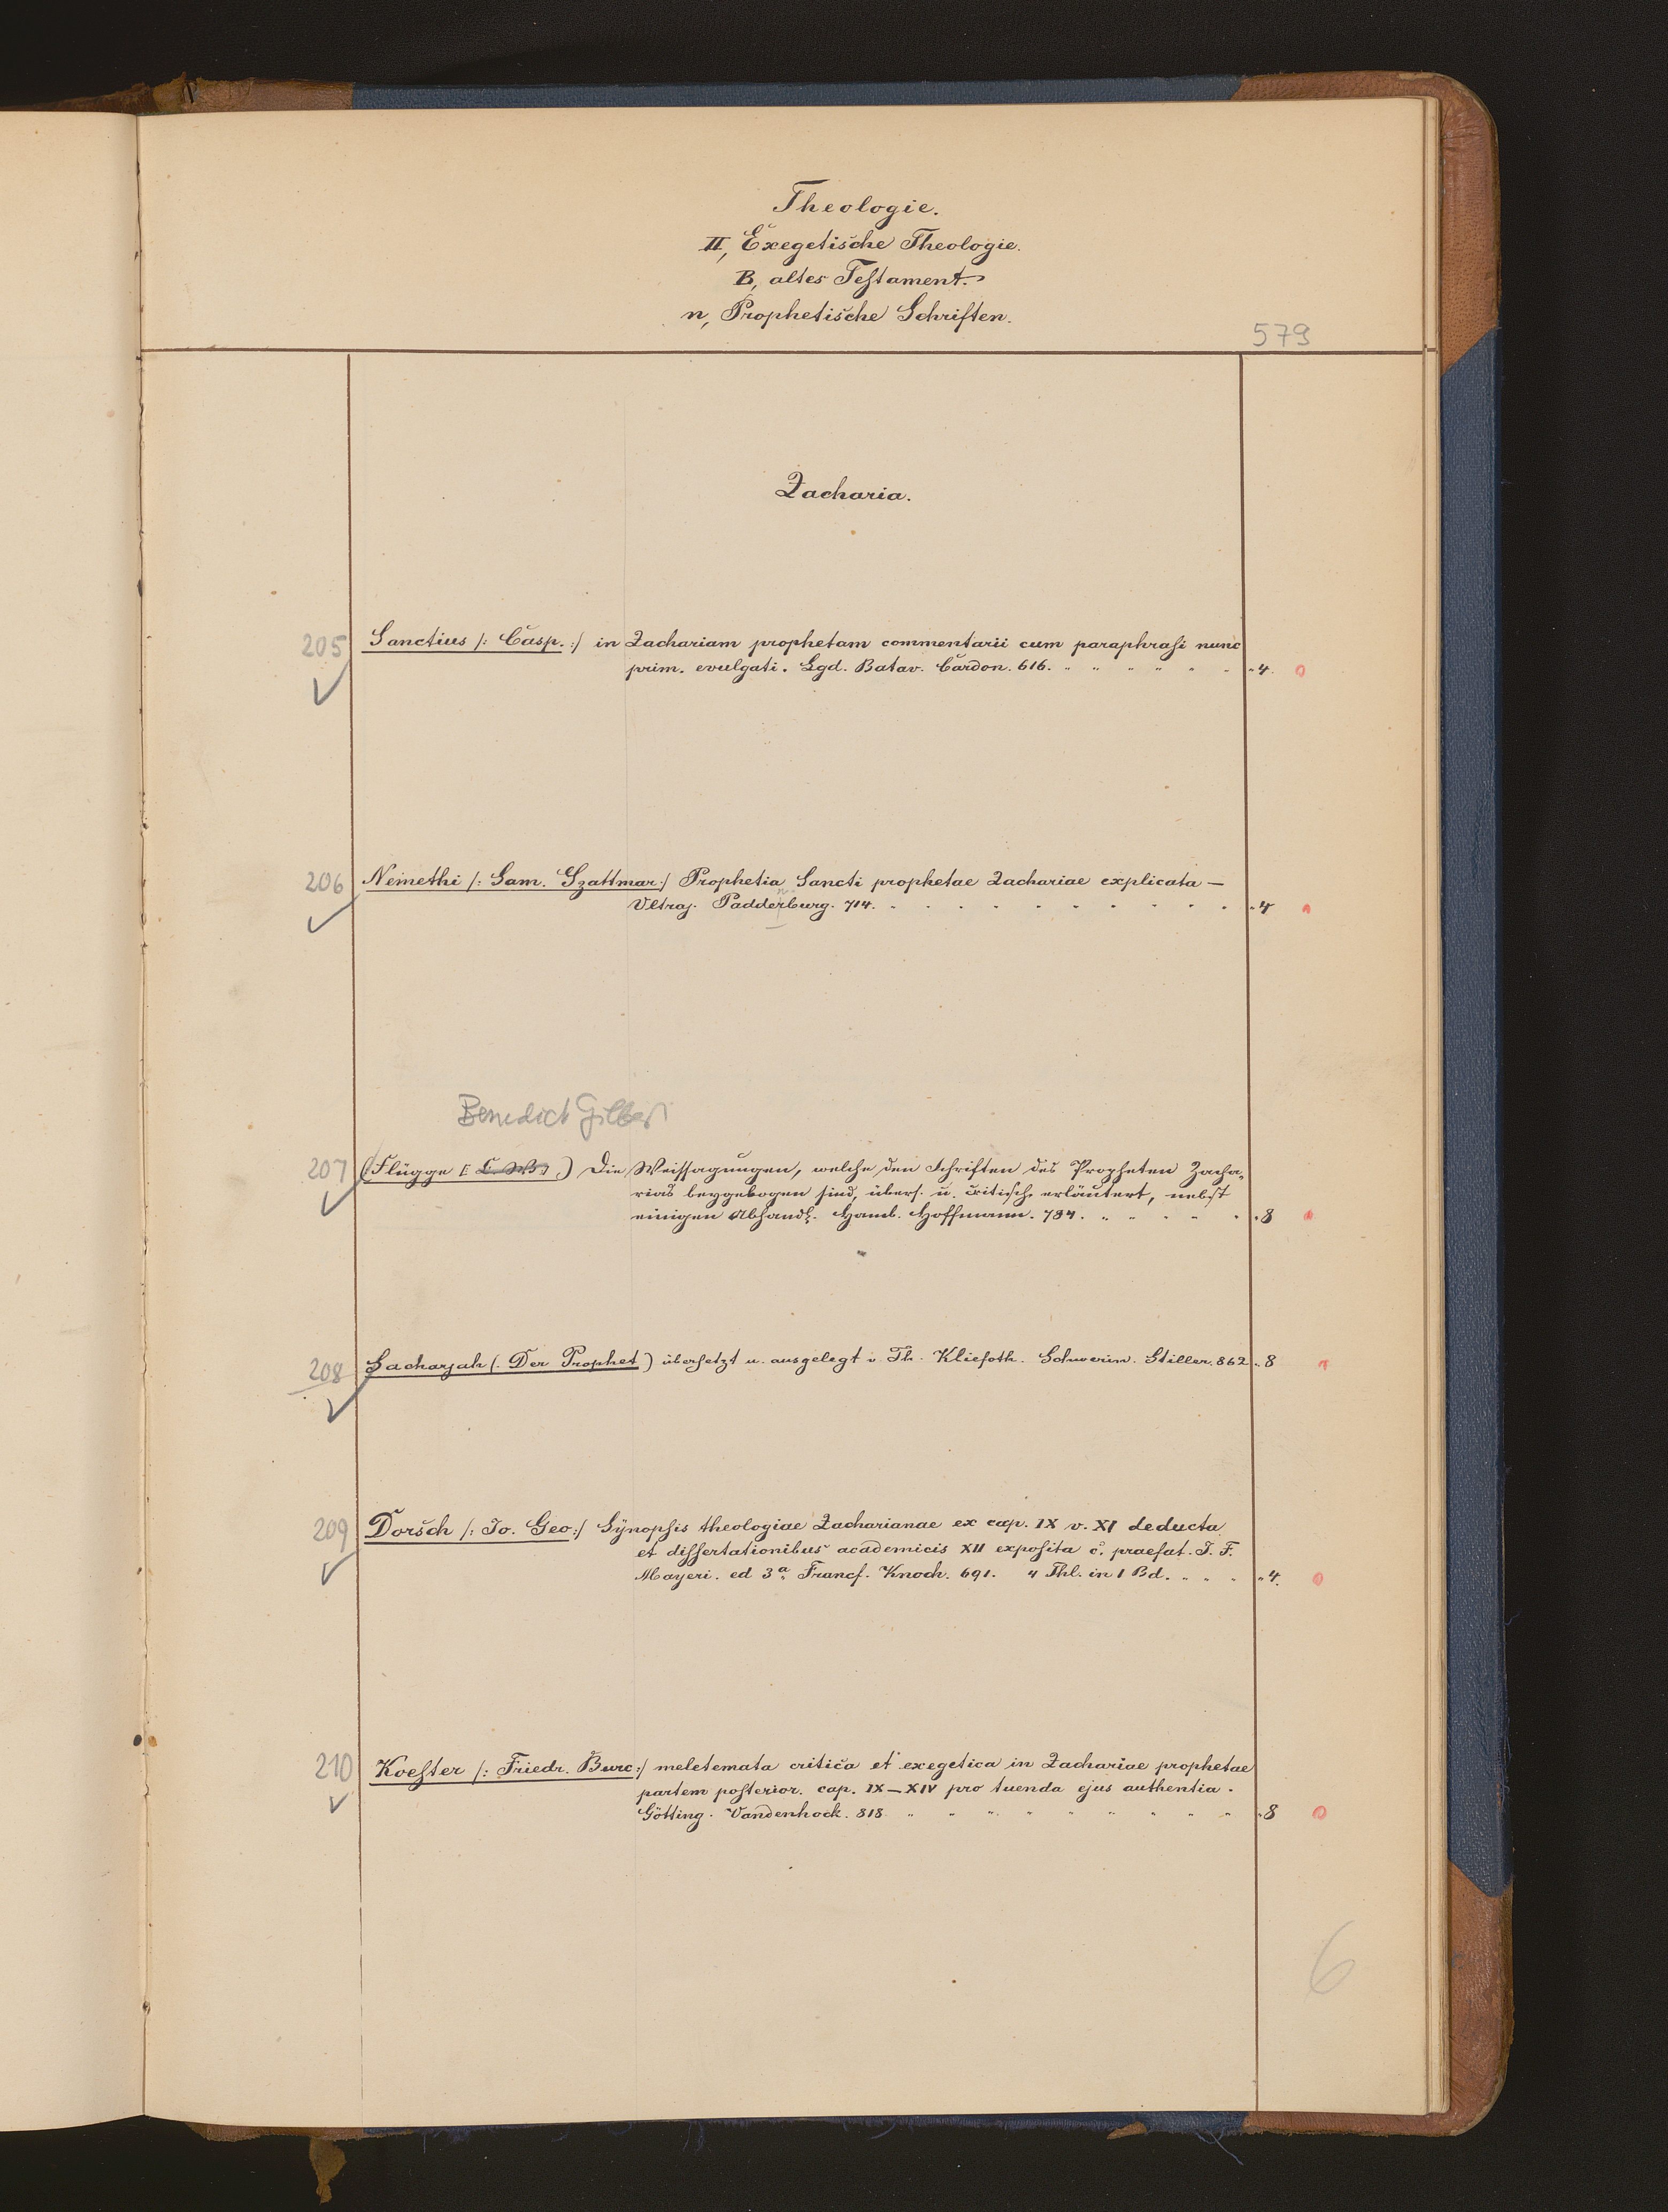 Theologie.
II, Exegetische Theologie.
B, altes Testament.
n, Prophetische Schriften.
579
Zacharia.
205 Sanctius /: Casp. :/ in Zachariam prophetam commentarii cum paraphrasi nunc
prim. evulgati. Lgd. Batav. Cardon. 616. " 4. 0
206 Nemethi /: Sam. Szattmar :/ Prophetia Sancti prophetae Zachariae explicata —
Vltraj. Padderburg. 714. " 4
Benedict Gilbert
207 (Flügge [: C. W. :] ) Die Weissagungen, welche den Schriften des Propheten Zacha„
rias beygebogen sind, übers. u. critisch erläutert, nebst
einigen Abhandl. Hamb. Hoffmann. 784. " 8
208 Sacharjah (. Der Prophet ) übersetzt u. ausgelegt v. Th. Kliefoth. Schwerin. Stiller. 862 " 8
209 Dorsch /: Jo. Geo :/ Synopsis theologiae Zacharianae ex cap. IX v. XI deducta
et dissertationibus academicis XII exposita c. praefat. J. F.
Mayeri. ed 3a Francf. Knoch. 691. 4 Thl. in 1 Bd. " 4. 0
210 Koester /: Friedr. Burc :/ meletemata critica et exegetica in Zachariae prophetae
partem posterior. cap. IX—XIV pro tuenda ejus authentia.
Götting. Vandenhock. 818. " 8 0
6